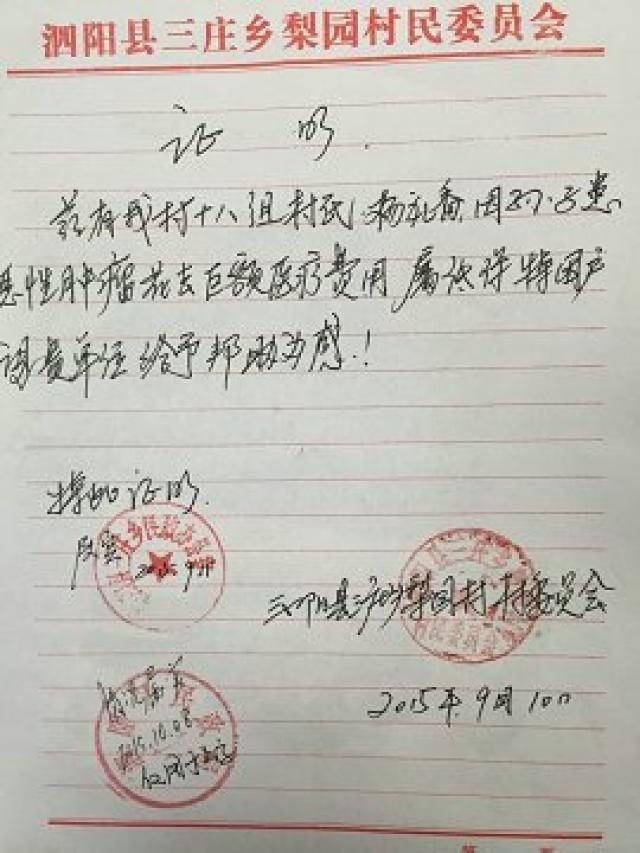 泗阳县三庄乡梨园村民委员会
证 明.
兹有我村十八组村民 杨礼番 因 患
恶性肿瘤花去巨额医疗费用 属 特困户
请贵单位给予邦助为感!
特此证明.
庄乡民政办
属实 2015.9
泗阳县三庄乡梨园村村委员会
情况属实
2015年9月10日
15.10.08